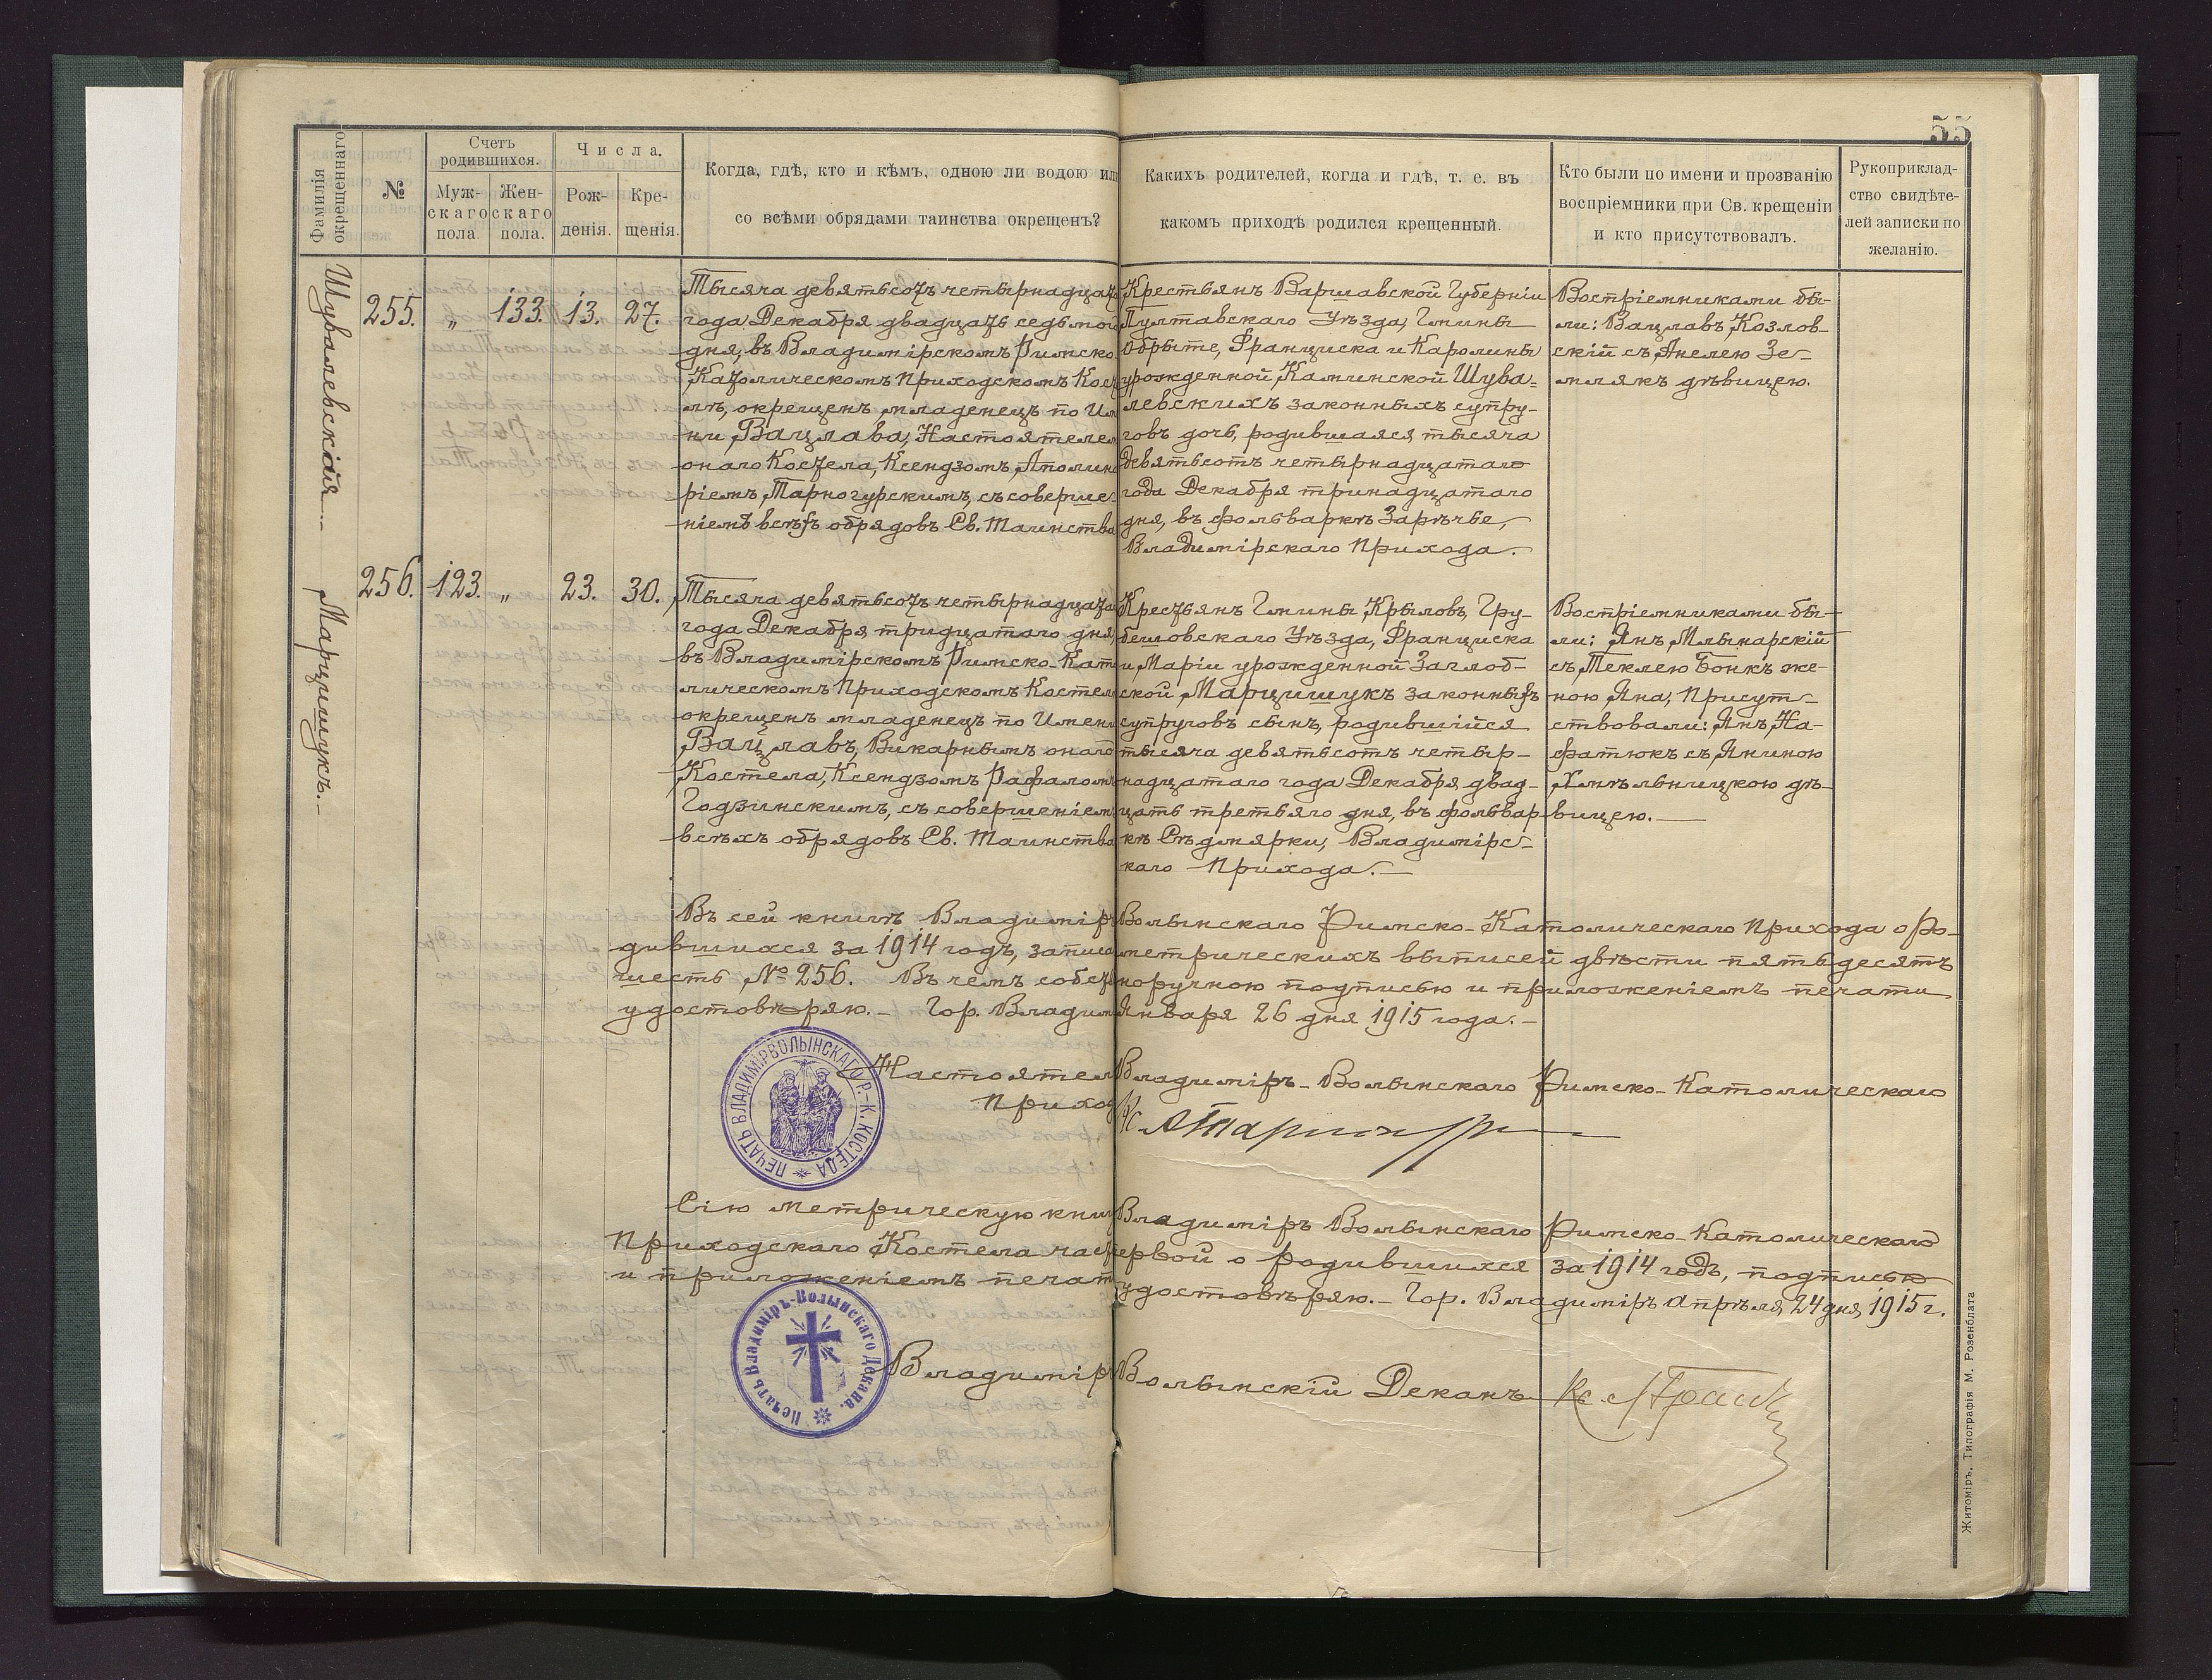 55
Фамилія окрещеннаго
№
Счетъ родившихся.
Муж-
скаго
пола.
Жен-
скаго
пола.
Числа.
Рож-
денія.
Кре-
щенія.
Когда, гдѣ, кто и кѣмъ, одною ли водою или
со всѣми обрядами таинства окрещенъ?
Какихъ родителей, когда и гдѣ, т. е. въ
какомъ приходѣ родился крещенный.
Кто были по имени и прозванію
воспріемники при Св. крещеніи
и кто присутствовалъ.
Рукоприклад-
ство свидѣте-
лей записки по
желанію.
255. „ 133. 13. 27.
Тысяча девятьсотъ четырнадцат
года Декабря двадцать седьмой
дня, въ Владимірскомъ Римско
Католическомъ Приходскомъ Кост
лѣ, окрещенъ младенецъ по Им
ни Вацлава, Настоятелем
онаго Костела, Ксендзомъ Аполин
ріемъ Тарногурскимъ, съ соверше-
ніемъ всѣхъ обрядовъ Св. Таинства
Крестьянъ Варшавской Губерніи
Пултавскаго Уѣзда, Гмины
Обрыте, Франциска и Каролины
урожденной Каминской Шува-
левскихъ законныхъ супру-
говъ дочь, родившаяся тысяча
девятьсотъ четырнадцатаго
года Декабря тринадцатаго
дня, въ фольваркѣ Зарѣчье,
Владимірскаго Прихода.
Воспріемниками бы-
ли: Вацлавъ Козлов-
скій съ Анелею Зе-
млякъ дѣвицею.
Марцишукъ.
256. 123. „ 23. 30.
Тысяча девятьсотъ четырнадцат
года Декабря тридцатаго дня
въ Владимірскомъ Римско-Като
лическомъ Приходскомъ Костел
окрещенъ младенецъ по Имени
Вацлавъ, Викарнымъ онаго
Костела, Ксендзомъ Рафаломъ
Годзинскимъ, съ совершеніем
всѣхъ обрядовъ Св. Таинства
Крестьянъ Гмины Крыловъ, Гру-
бешовскаго Уѣзда, Франциска
и Маріи урожденной Заглоб-
ской Марцишукъ законныхъ
супруговъ сынъ, родившійся
тысяча девятьсотъ четыр-
надцатаго года Декабря двад-
цать третьяго дня, въ фольвар-
кѣ Сѣдмярки, Владимірс-
каго Прихода.
Воспріемниками бы-
ли: Янъ Млынарскій
съ Теклею Бонкъ же-
ною Яна, Присут-
ствовали: Янъ На-
фатюкъ съ Яниною
Хмѣльницкою дѣ-
вицею.
Въ сей книгѣ Владиміръ Волынскаго Римско-Католическаго Прихода о Ро-
дившихся за 1914 годъ, записа метрическихъ выписей двѣсти пятьдесятъ
шесть № 256. Въ чемъ собст норучною подписью и приложеніемъ печати
удостовѣряю. Гор. Владим Января 26 дня 1915 года.
Настоятел Владиміръ-Волынскаго Римско-Католическаго
Приход Кс.
ПЕЧАТЬ ВЛАДИМІРВОЛЫНСКАГО Р.-К. КОСТЕЛА
Сію метрическую книг Владиміръ Волынскаго Римско-Католическаго
Приходскаго Костела част ервой о родившихся за 1914 годъ, подписью
и приложеніемъ печат удостовѣряю. Гор. Владиміръ Апрѣля 24 дня 1915 г.
Печать Владиміръ-Волынскаго Декана.
Владиміръ Волынскій Деканъ Кс.
Житоміръ, Типографія М. Розенблата